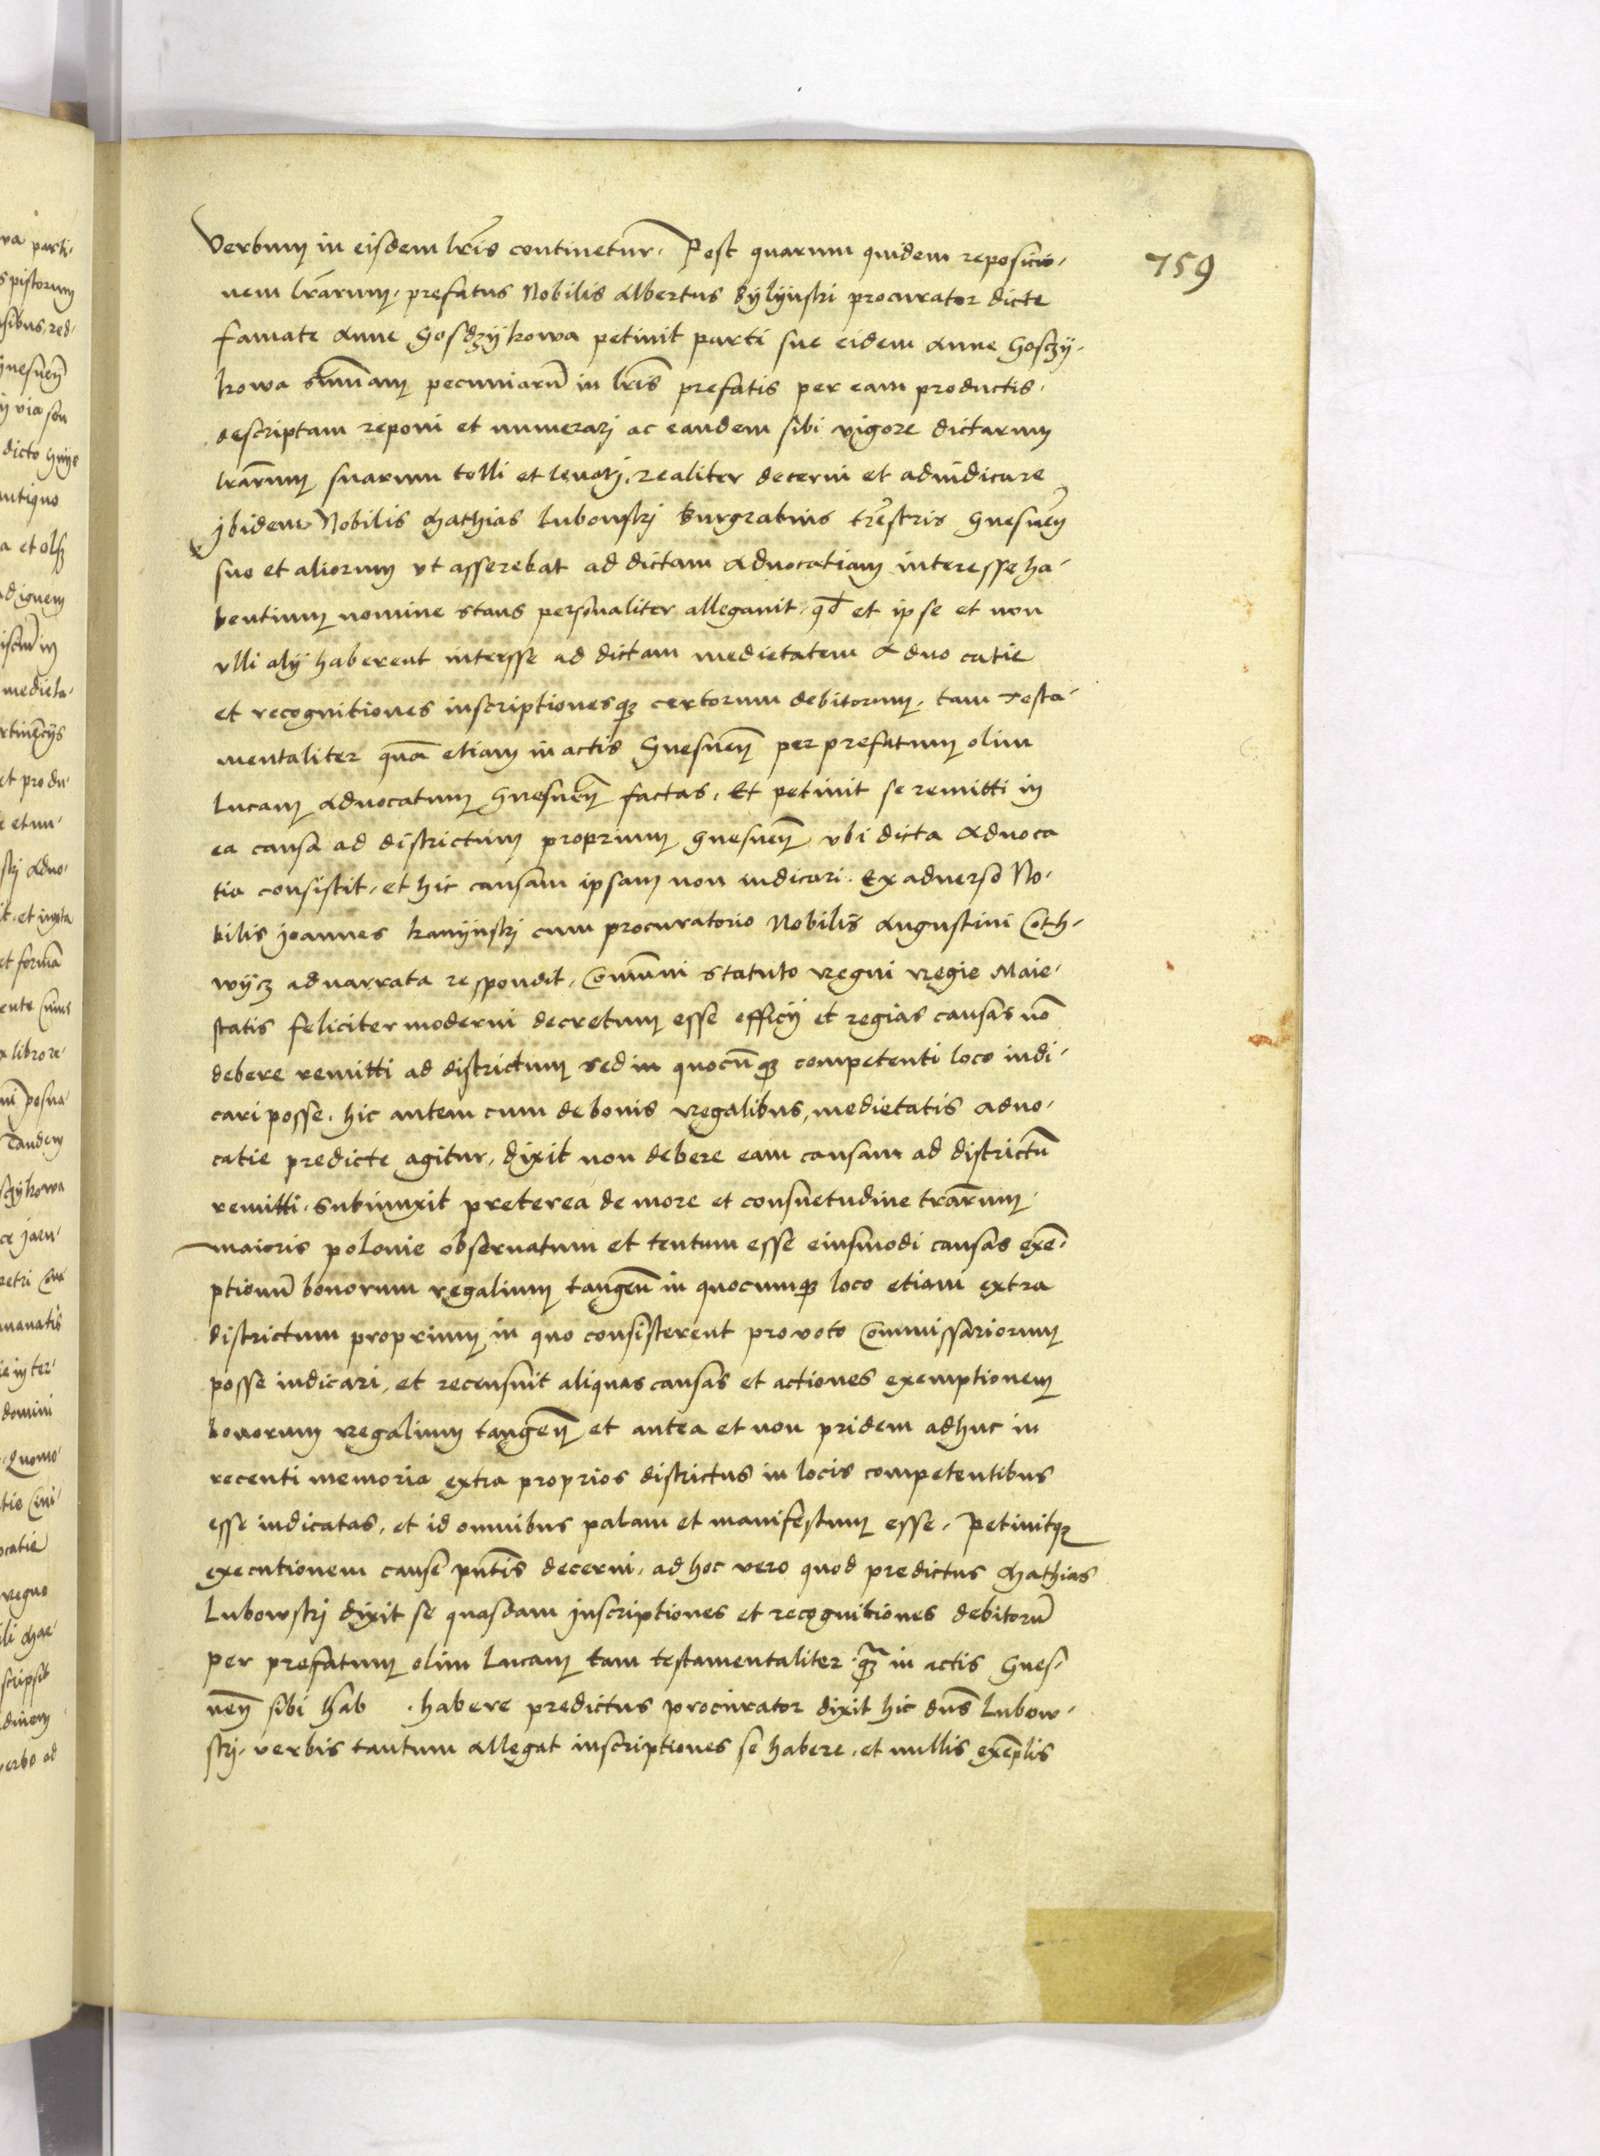 759
Verbum in eisdem lr̃is continetur. Post quarum quidem reposicio-
nem lrãrum. prefatus Nobilis Albertus Bylijnski procurator dicte
famate Anne Gosdzÿkowa petiuit parti sue eidem Anne Gosczÿ-
kowa summam pecuniarũ in lr̃is prefatis per eam productis.
descriptam reponi et numerarj ac eandem sibi vigore dictarum
lrãrum suarum tolli et leuarj. realiter decerni et adiudicare
jbidem Nobilis Mathias Lubowskj Burgrabius trẽstris Gnesneñ
suo et aliorum vt asserebat ad dictam Aduocatiam interesse ha-
bentium nomine stans personaliter allegauit. qd̃ et ipse et non
vlli alij haberent interesse ad dictam medietatem Aduocatie
et recognitiones inscriptionesqꝫ certorum debitorum. tam testa-
mentaliter quã etiam in actis Gnesneñ per prefatum olim
Lucam Aduocatum Gnesneñ factas. Et petiuit se remitti in
ea causa ad districtum proprium Gnesneñ vbi dicta Aduoca
tia consistit. et hic causam ipsam non iudicari. Ex aduerso No-
bilis Joannes kanijnskj cum procuratorio Nobilis Augustini Coth-
wÿcz ad narrata respondit. Com̃uni statuto Regni Regie Maie-
statis feliciter moderni decretum esse officij et regias causas nõ
debere remitti ad districtum sed in quocũqꝫ competenti loco iudi-
cari posse. hic autem cum de bonis Regalibus, medietatis aduo-
catie predicte agitur, dixit non debere eam causam ad districtũ
remitti. subiunxit preterea de more et consuetudine trãrum
maioris polonie obseruatum et tentum esse eiusmodi causas exẽ-
ptionũ bonorum regalium tangeñ in quocumqꝫ loco etiam extra
districtum proprium in quo consisterent pro voto Commissariorum
posse iudicari, et recensuit aliquas causas et actiones exemptionem
bonorum Regalium tangeñ et antea et non pridem adhuc in
recenti memoria extra proprios districtus in locis competentibus
esse iudicatas, et id omnibus palam et manifestum esse. Petiuitqꝫ
executionem cause pñtis decerni. ad hoc vero quod predictus Mathias
Lubowskj dixit se quasdam Jnscriptiones et recognitiones debitorũ
per prefatum olim Lucam tam testamentaliter qꝫ̃ in actis Gnes-
neñ sibi hab . habere predictus procurator dixit hic dñs Lubow-
skj. verbis tantum allegat inscriptiones se habere. et nullis exẽplis